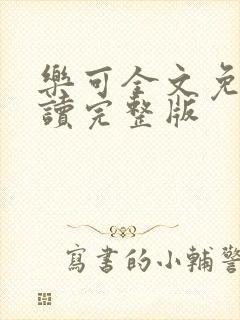 樂可全文免
讀完整版
寫書的小輔警